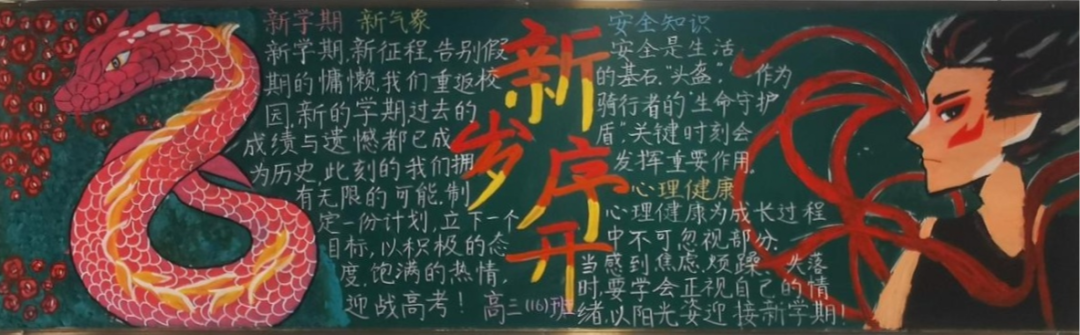 新学期 新气象
新学期,新征程,告别假
期的慵懒,我们重返校
园,新的学期过去的
成绩与遗憾都已成
为历史,此刻的我们拥
有无限的可能,制
定一份计划,立下一个
目标,以积极的态
度,饱满的热情,
迎战高考!
高三(16)班
新
岁
序
开
安全知识
安全是生活
的基石,“头盔”,作为
骑行者的“生命守护
盾”,关键时刻会
发挥重要作用。
心理健康
心理健康为成长过程
中不可忽视部分,
当感到焦虑、烦躁、失落
时,要学会正视自己的情
绪,以阳光姿迎接新学期!